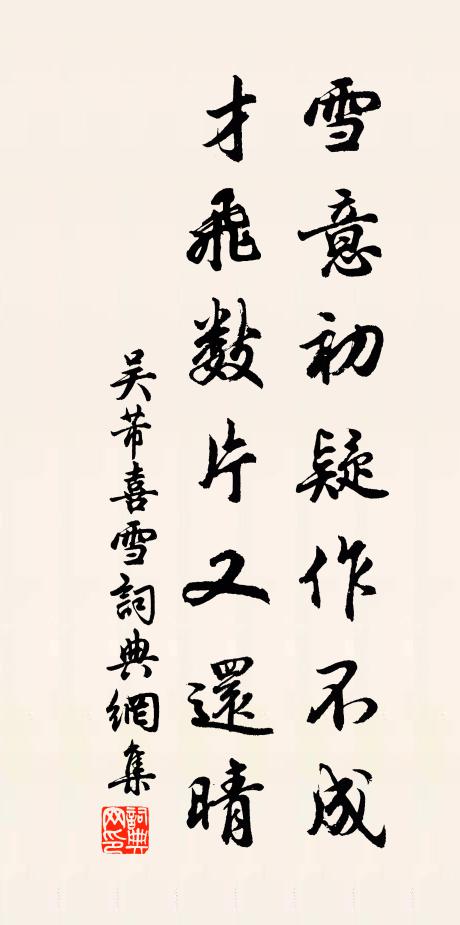 雪意初疑作不成
才飛數片又還晴
吴芾喜雪詞典網集
詞典網印